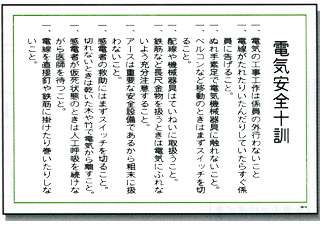 電気安全十訓
一、電気の工事工作は係員の外行わないこと
一、電線がたれたりいたんだりしていたらすぐ係
員に告げること。
一、ぬれ手素足で電気機械器具に触れないこと。
一、ベルコンなど移動のときはまずスイッチを切
ること。
一、配線や機械器具はていねいに取扱うこと。
一、鉄筋など長尺金物を扱うときは電気にふれな
いよう充分注意すること。
一、アースは重要な安全設備であるから粗末に扱
わないこと。
一、感電者の救助にはまずスイッチを切ること。
切れないときは乾いた木や竹で電気から離すこと。
一、感電者が仮死状態のときは人工呼吸を続けな
がら医師を待つこと。
一、電線を直接釘や鉄筋に掛けたり巻いたりしな
いこと。